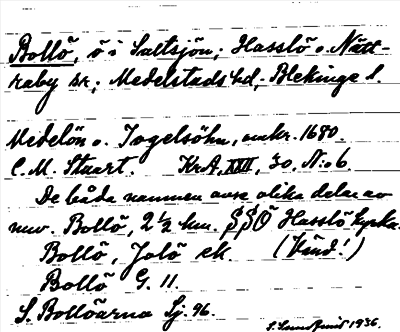 Bollö, ö i Saltsjön; Hasslö o. Nätt-
raby skr; Medelstads hd, Blekinge l.
Medelön o. Iogelsöhn, omkr. 1680.
C. M. Stuart. KrA, XXII, 30, N:o 6.
De båda namnen avse olika delar av
nuv. Bollö, 2 1/2 km. SSÖ Hasslö kyrka.
Bollö, Jolö ek. (Vänd!)
Bollö G. 11.
S. Bollöarna Sj. 96.
1936.